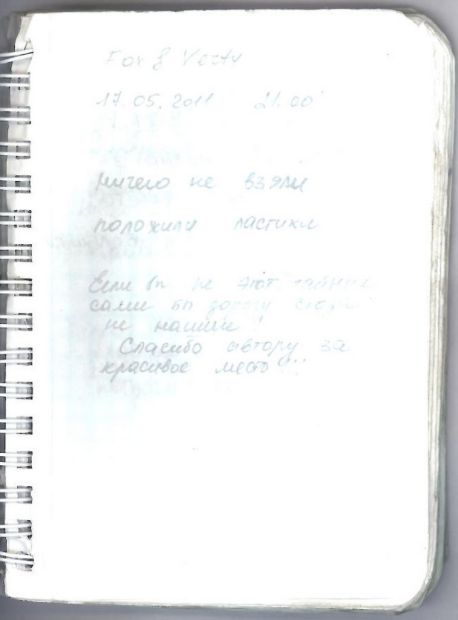 Fox & Verty
17.05.2011 21.00
ничего не взяли
положили ластики
Если бы не этот тайник
сами бы дорогу сюда
не нашли!
Спасибо автору за
красивое место!!!